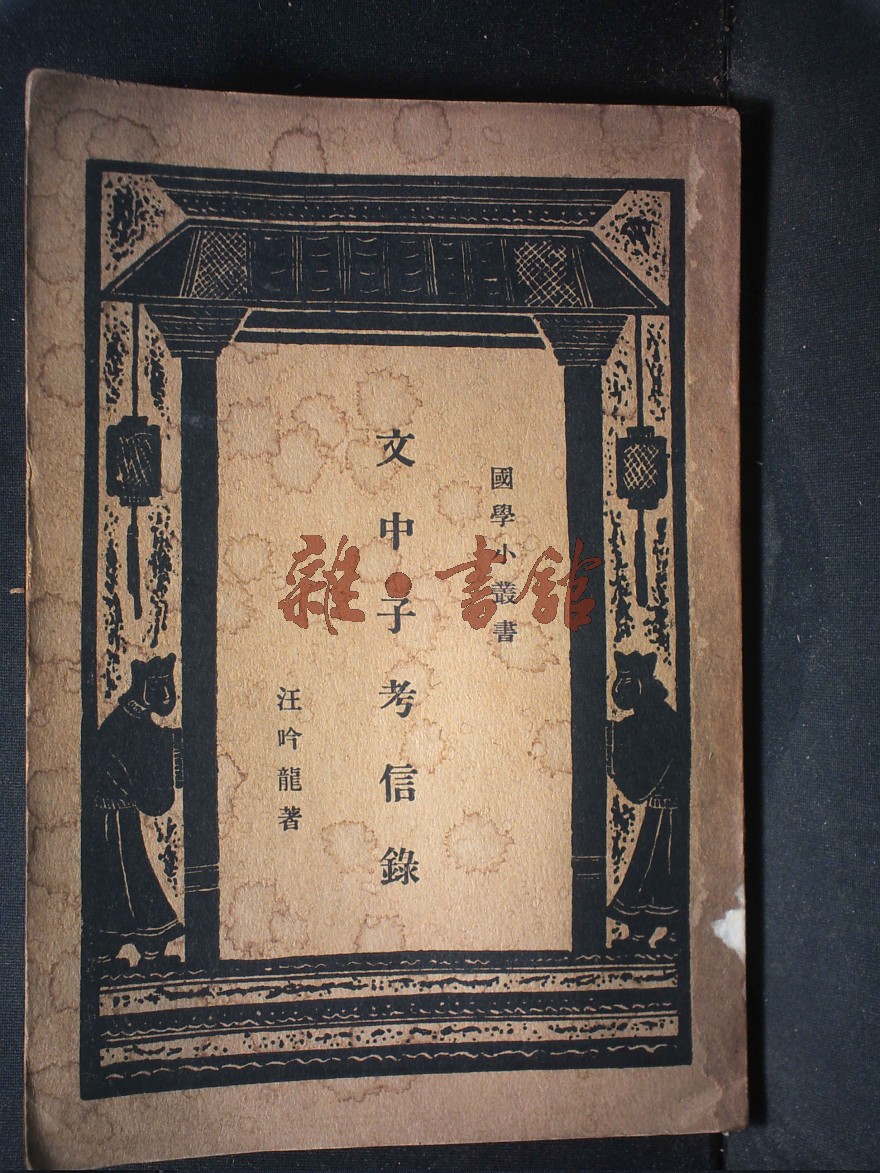 國學小叢書
文中子考信錄
汪吟龍著
雜·書館